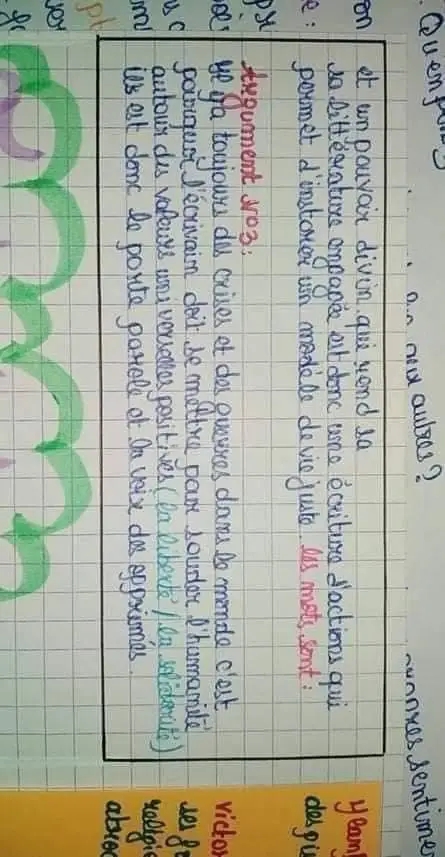 aux autres?
et un pouvoir divin qui rend sa
la littérature engagée est donc une écriture d'actions qui
permet d'instorer un modèle de vie juste. les mots sont :
Argument N°3:
Il y'a toujours des crises et des guerres dans le monde c'est
pourquoi l'écrivain doit se mettre pour souder l'humanité
autour des valeurs universelles positives (la liberté / la solidarité)
ils est donc le porte parole et la voix des opprimés.
victor